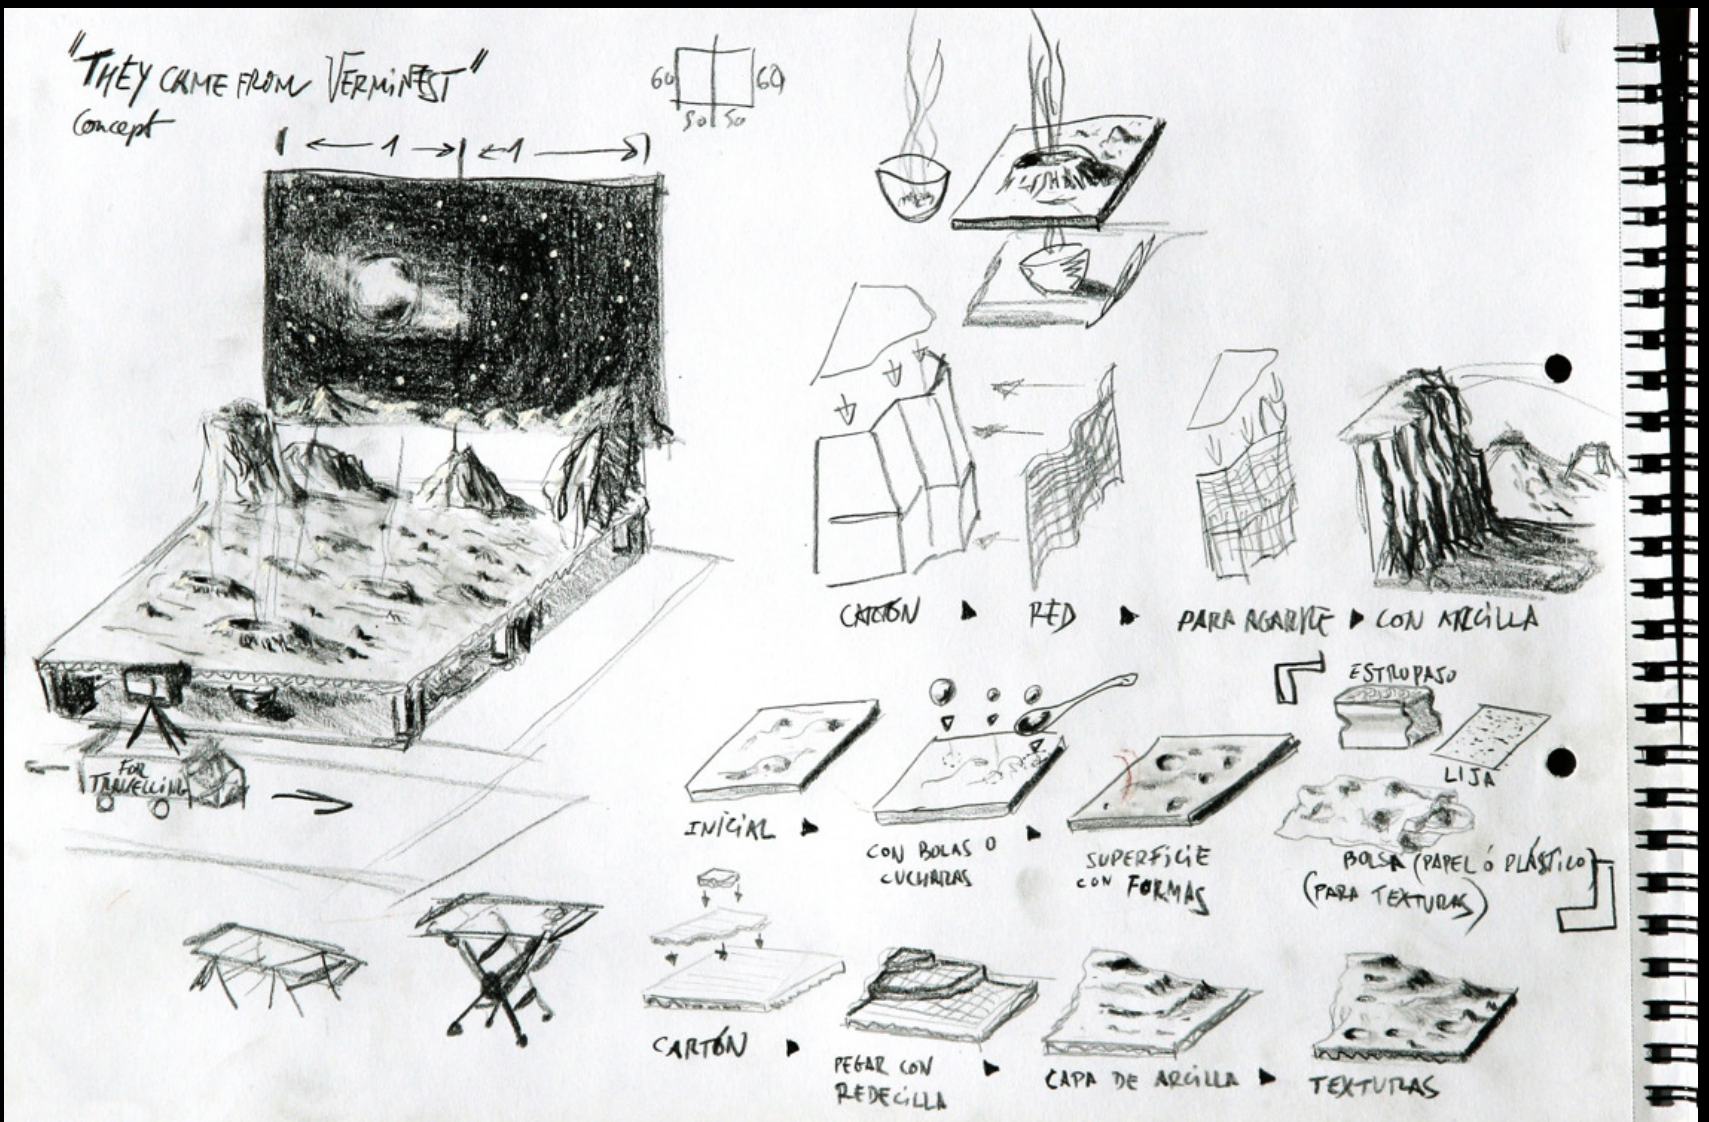 "THEY CAME FROM VERMINEST"
Concept
1 1
60 60
50 50
CARTÓN RED PARA AGARRE CON ARCILLA
ESTROPAJO
LIJA
BOLSA (PAPEL Ó PLÁSTICO)
(PARA TEXTURAS)
INICIAL
CON BOLAS O
CUCHARAS
SUPERFICIE
CON FORMAS
FOR
TRAVELLING
CARTÓN
PEGAR CON
REDECILLA
CAPA DE ARCILLA
TEXTURAS